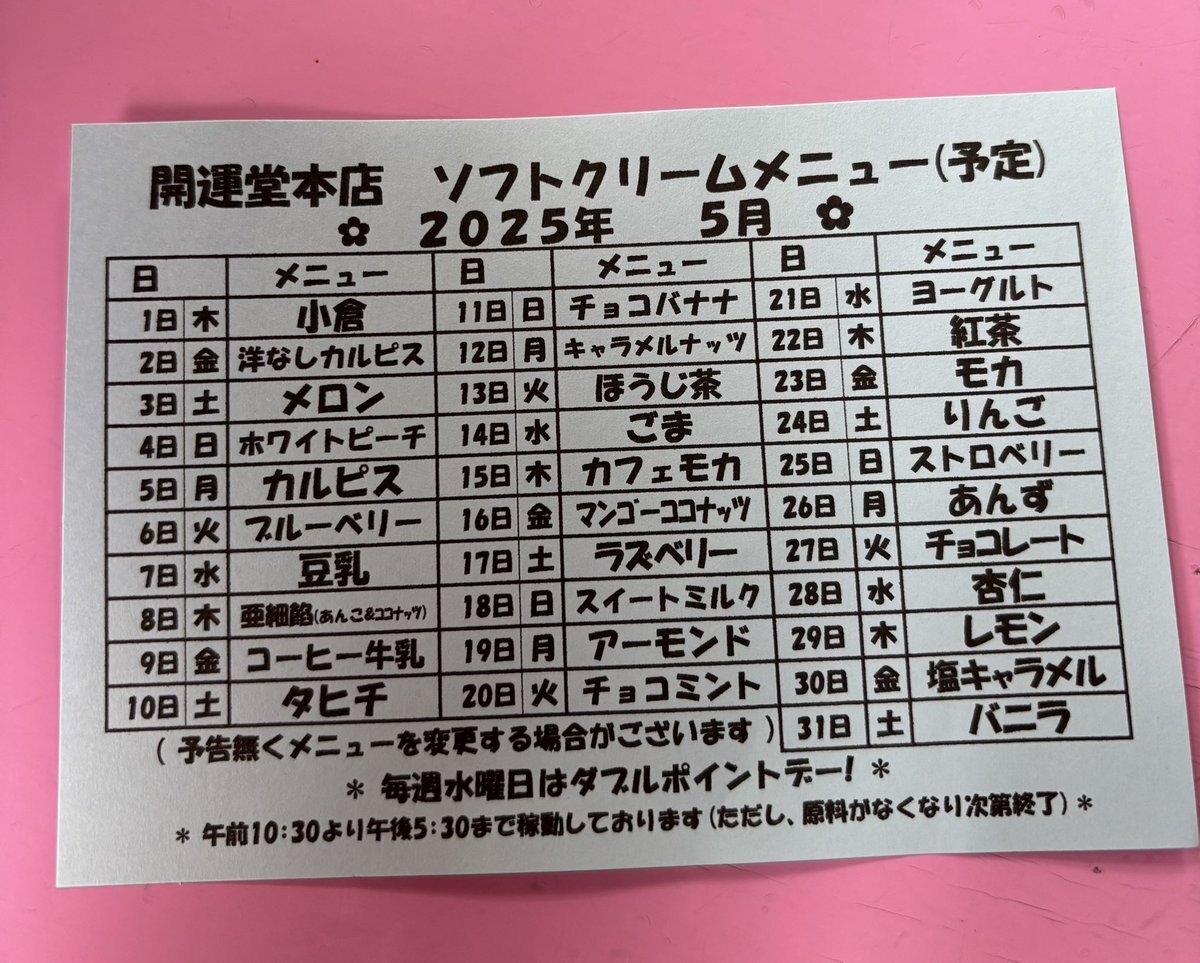 開運堂本店 ソフトクリームメニュー(予定)
✿ 2025年 5月 ✿
日 メニュー 日 メニュー 日 メニュー
1日 木 小倉 11日 日 チョコバナナ 21日 水 ヨーグルト
2日 金 洋なしカルピス 12日 月 キャラメルナッツ 22日 木 紅茶
3日 土 メロン 13日 火 ほうじ茶 23日 金 モカ
4日 日 ホワイトピーチ 14日 水 ごま 24日 土 りんご
5日 月 カルピス 15日 木 カフェモカ 25日 日 ストロベリー
6日 火 ブルーベリー 16日 金 マンゴーココナッツ 26日 月 あんず
7日 水 豆乳 17日 土 ラズベリー 27日 火 チョコレート
8日 木 亜細餡(あんこ&ココナッツ) 18日 日 スイートミルク 28日 水 杏仁
9日 金 コーヒー牛乳 19日 月 アーモンド 29日 木 レモン
10日 土 タヒチ 20日 火 チョコミント 30日 金 塩キャラメル
31日 土 バニラ
( 予告無くメニューを変更する場合がございます )
* 毎週水曜日はダブルポイントデー! *
* 午前10:30より午後5:30まで稼動しております(ただし、原料がなくなり次第終了) *